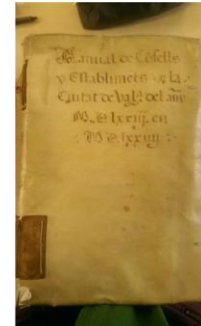 Manual de Cõsells
y Establimẽts de la
Ciutat de Valª. del any
M. D. lxxiij. en
M D lxxiiij